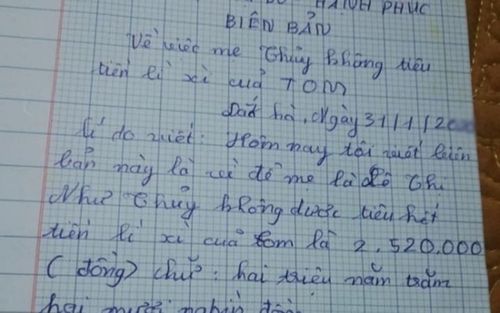 HẠNH PHÚC
BIÊN BẢN
Về việc mẹ Thủy không tiêu
tiền lì xì của TOM
Đắk hà, Ngày 31/1/20
lí do viết: Hôm nay tôi viết biên
bản này là vì để mẹ là Lê Thị
Như Thủy không được tiêu hết
tiền lì xì của tom là 2.520.000
(đồng) chữ: hai triệu năm trăm
hai mươi nghìn đồng